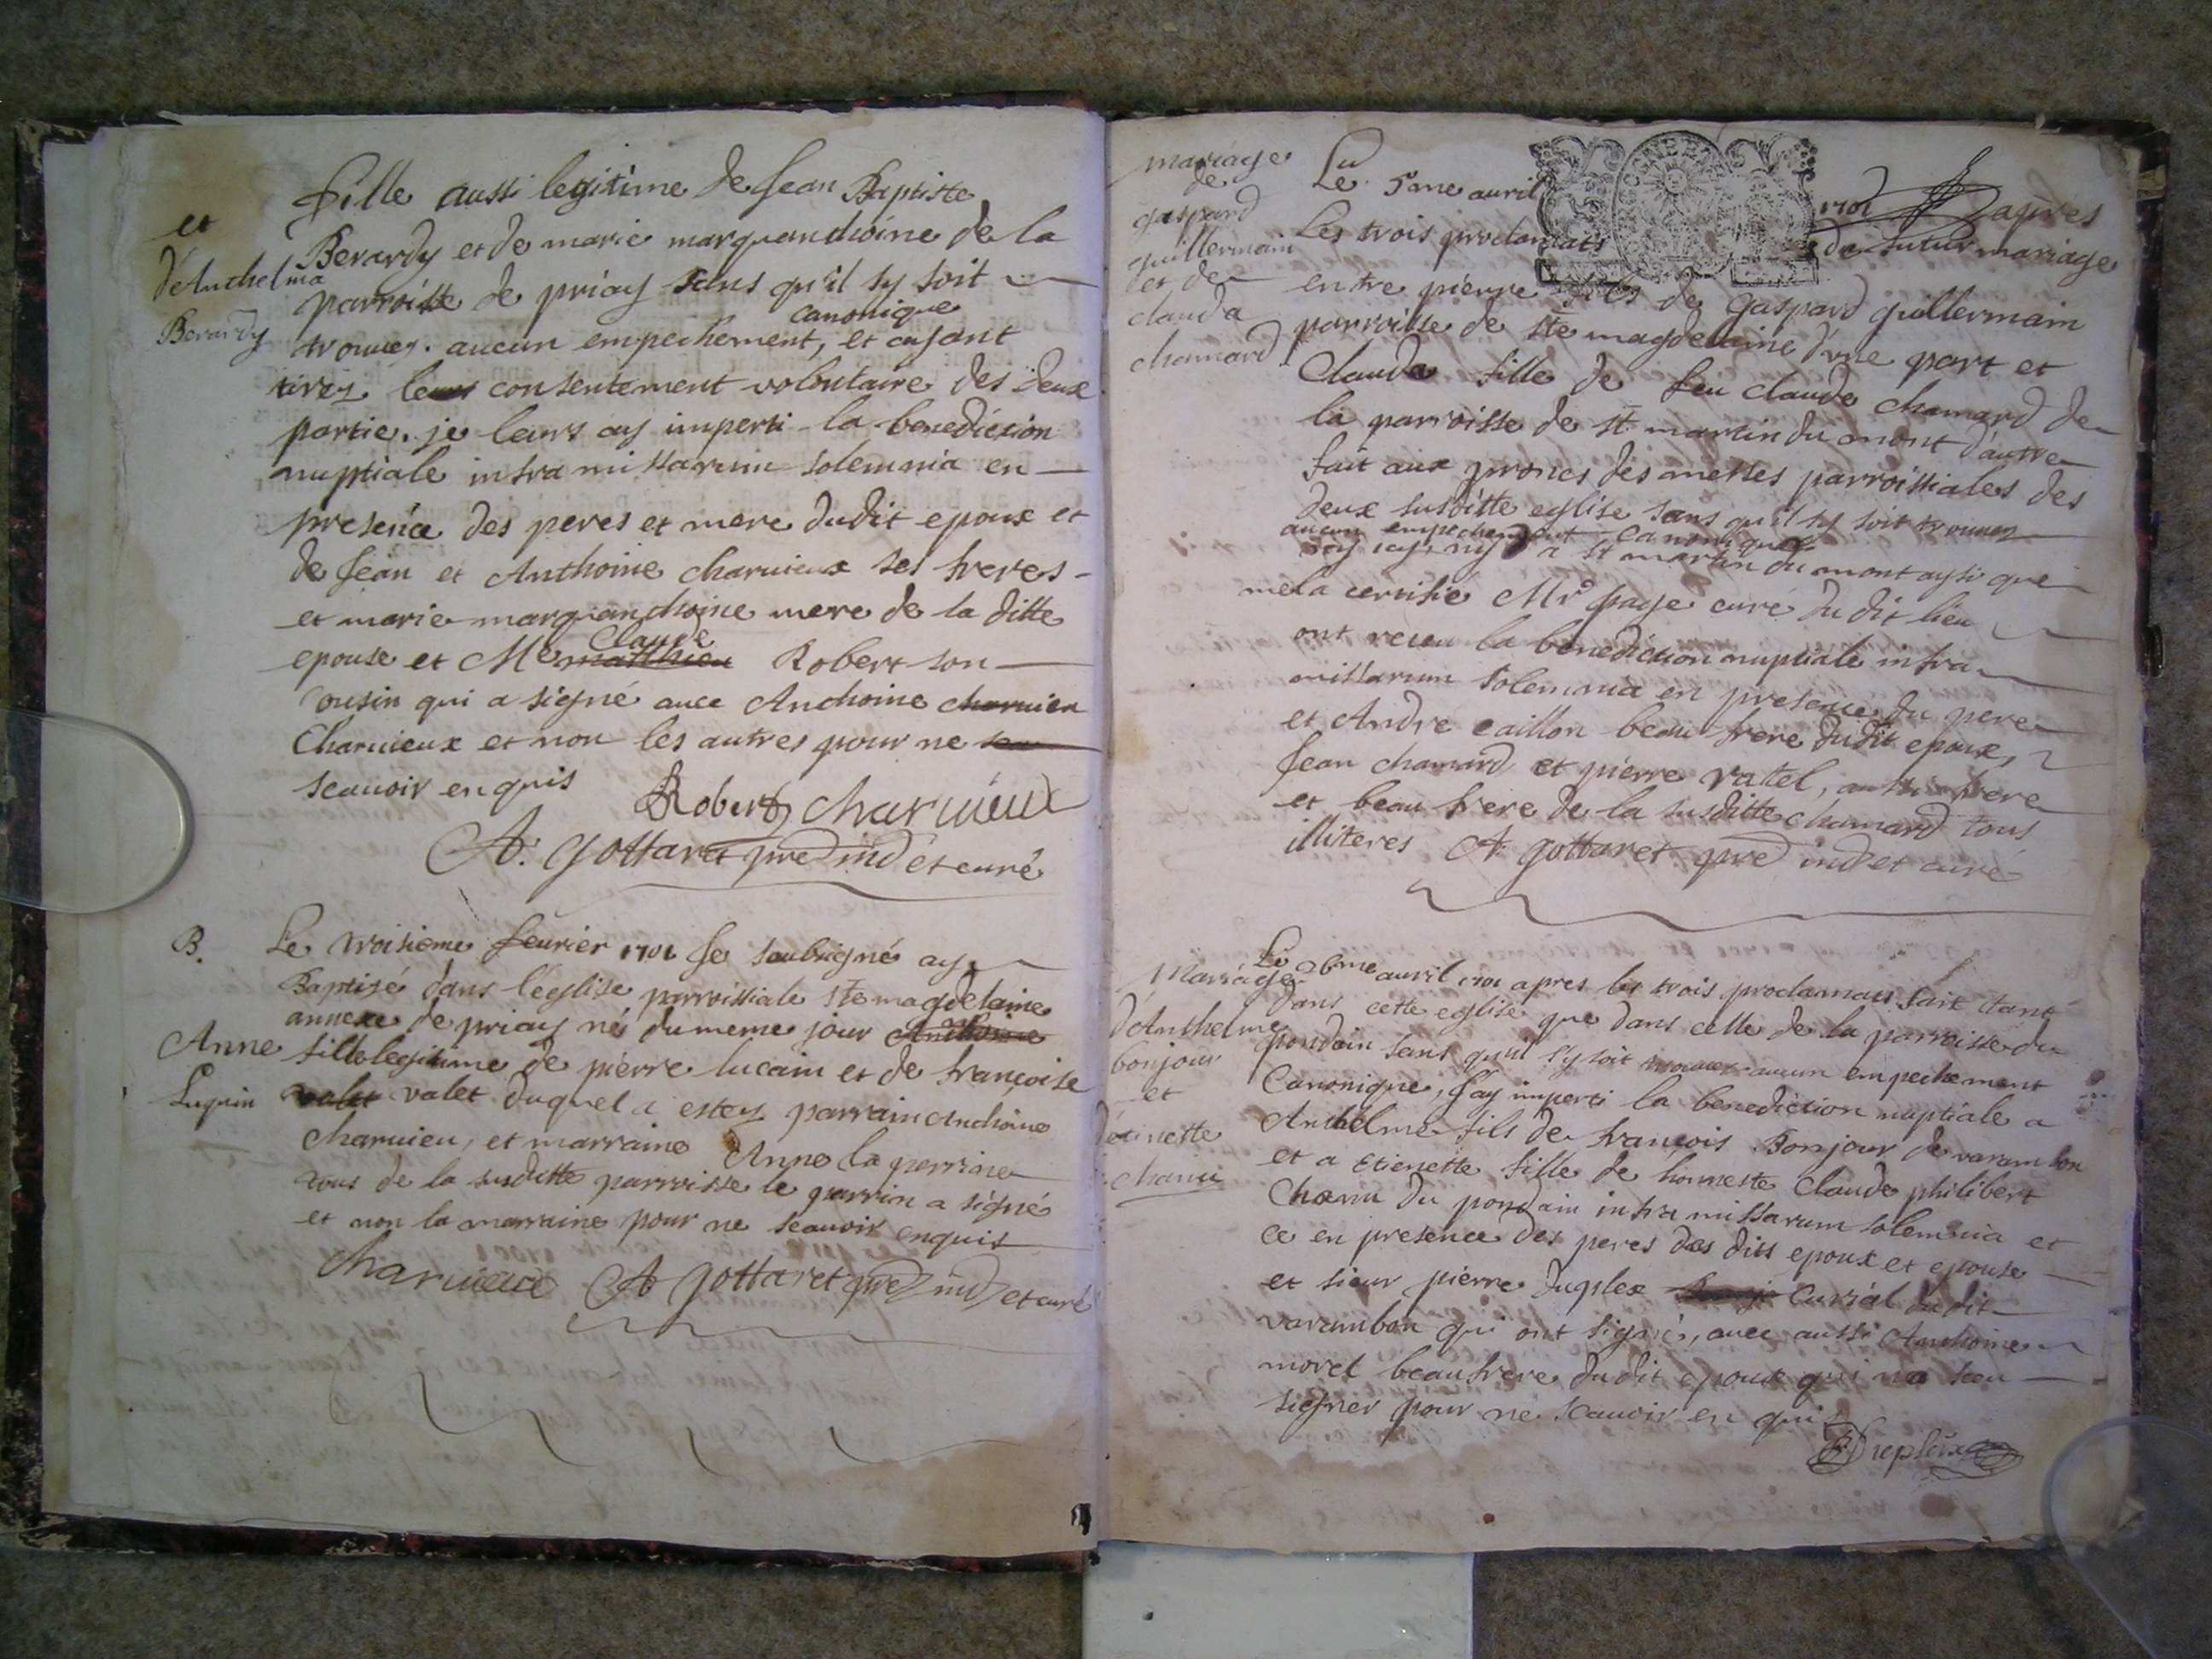 et
d'Anthelma
Berardy
fille aussi legitime de Jean Baptiste
Berardy et de marie marquandhoine de la
parroisse de priay sans qu'il sy soit
canonique
trouuez aucun empechement, et ayant
tirez leurs consentement volontaire des deux
partie. je leurs ay imperti la benediction
nuptiale intra missarum solemnia en
presence des peres et mere dudit epoux et
de Jean et Anthoine charuieux ses freres
et marie marquandhoine mere de la ditte
Claude
epouse et Me matthieu Robert son
cousin qui a signé auec Anthoine charuieu
Charuieux et non les autres pour ne scau
scauoir enquis
Robert charuieux
A. Gottaret pre ind et curé
B.
Anne
Luquin
Le troisieme feurier 1701 Je soubsigné ay
Baptisé dans l'eglise parroissiale ste magdelaine
annexe de priay né du meme jour Anthoine
fille legitime de pierre lucain et de françoise
valet valet duquel a estez parrain Anthoine
charuieu, et marraine Anne la perrine
tous de la susditte parroisse le parrin a signé
et non la marraine pour ne scauoir enquis
charuieux A Gottaret pre ind et curé
mariage
de
gaspard
guillermain
et de
clauda
chamard
Le 5me auril 1701 apres
Les trois proclamats du futur mariage
entre pierre fils de gaspard guillermain
parroisse de ste magdelaine d'une part et
Clauda fille de feu claude chamard de
la parroisse de st martin du mont d'autre
fait aux prones des messes parroissiales des
deux susditte eglise sans qu'il sy soit trouuez
aucun empechement canonique
ny icy, ny a st martin du mont aysi que
mela certifié Mr page curé du dit lieu
ont receu la benediction nuptiale intra
missarum solemnia en presence du pere
et Andre caillon beau frere dudit epoux,
Jean chamard et pierre ratel, aussi frere
et beau frere de la susditte chamard tous
illiteres A Gottaret pre ind et curé
Mariage
d'Anthelme
bonjour
et
d'etinette
chanu
Le 26me auril 1701 apres les trois proclamats fait tant
dans cette eglise que dans celle de la parroisse du
pondain sans qu'il s'y soit trouuer aucun empechement
Canonique, J'ay imperti la benediction nuptiale a
Anthelme fils de françois Bonjour de varambon
et a Etienette fille de honneste Claude philibert
Chanu du pondain intra missarum solemnia et
ce en presence des peres des dits epoux et epouse
et sieur pierre duplex Curial dudit
varambon qui ont signé, auec aussi Anthoine
morel beaufrere dudit epoux qui na sceu
signer pour ne scauoir en quis
Dupleix